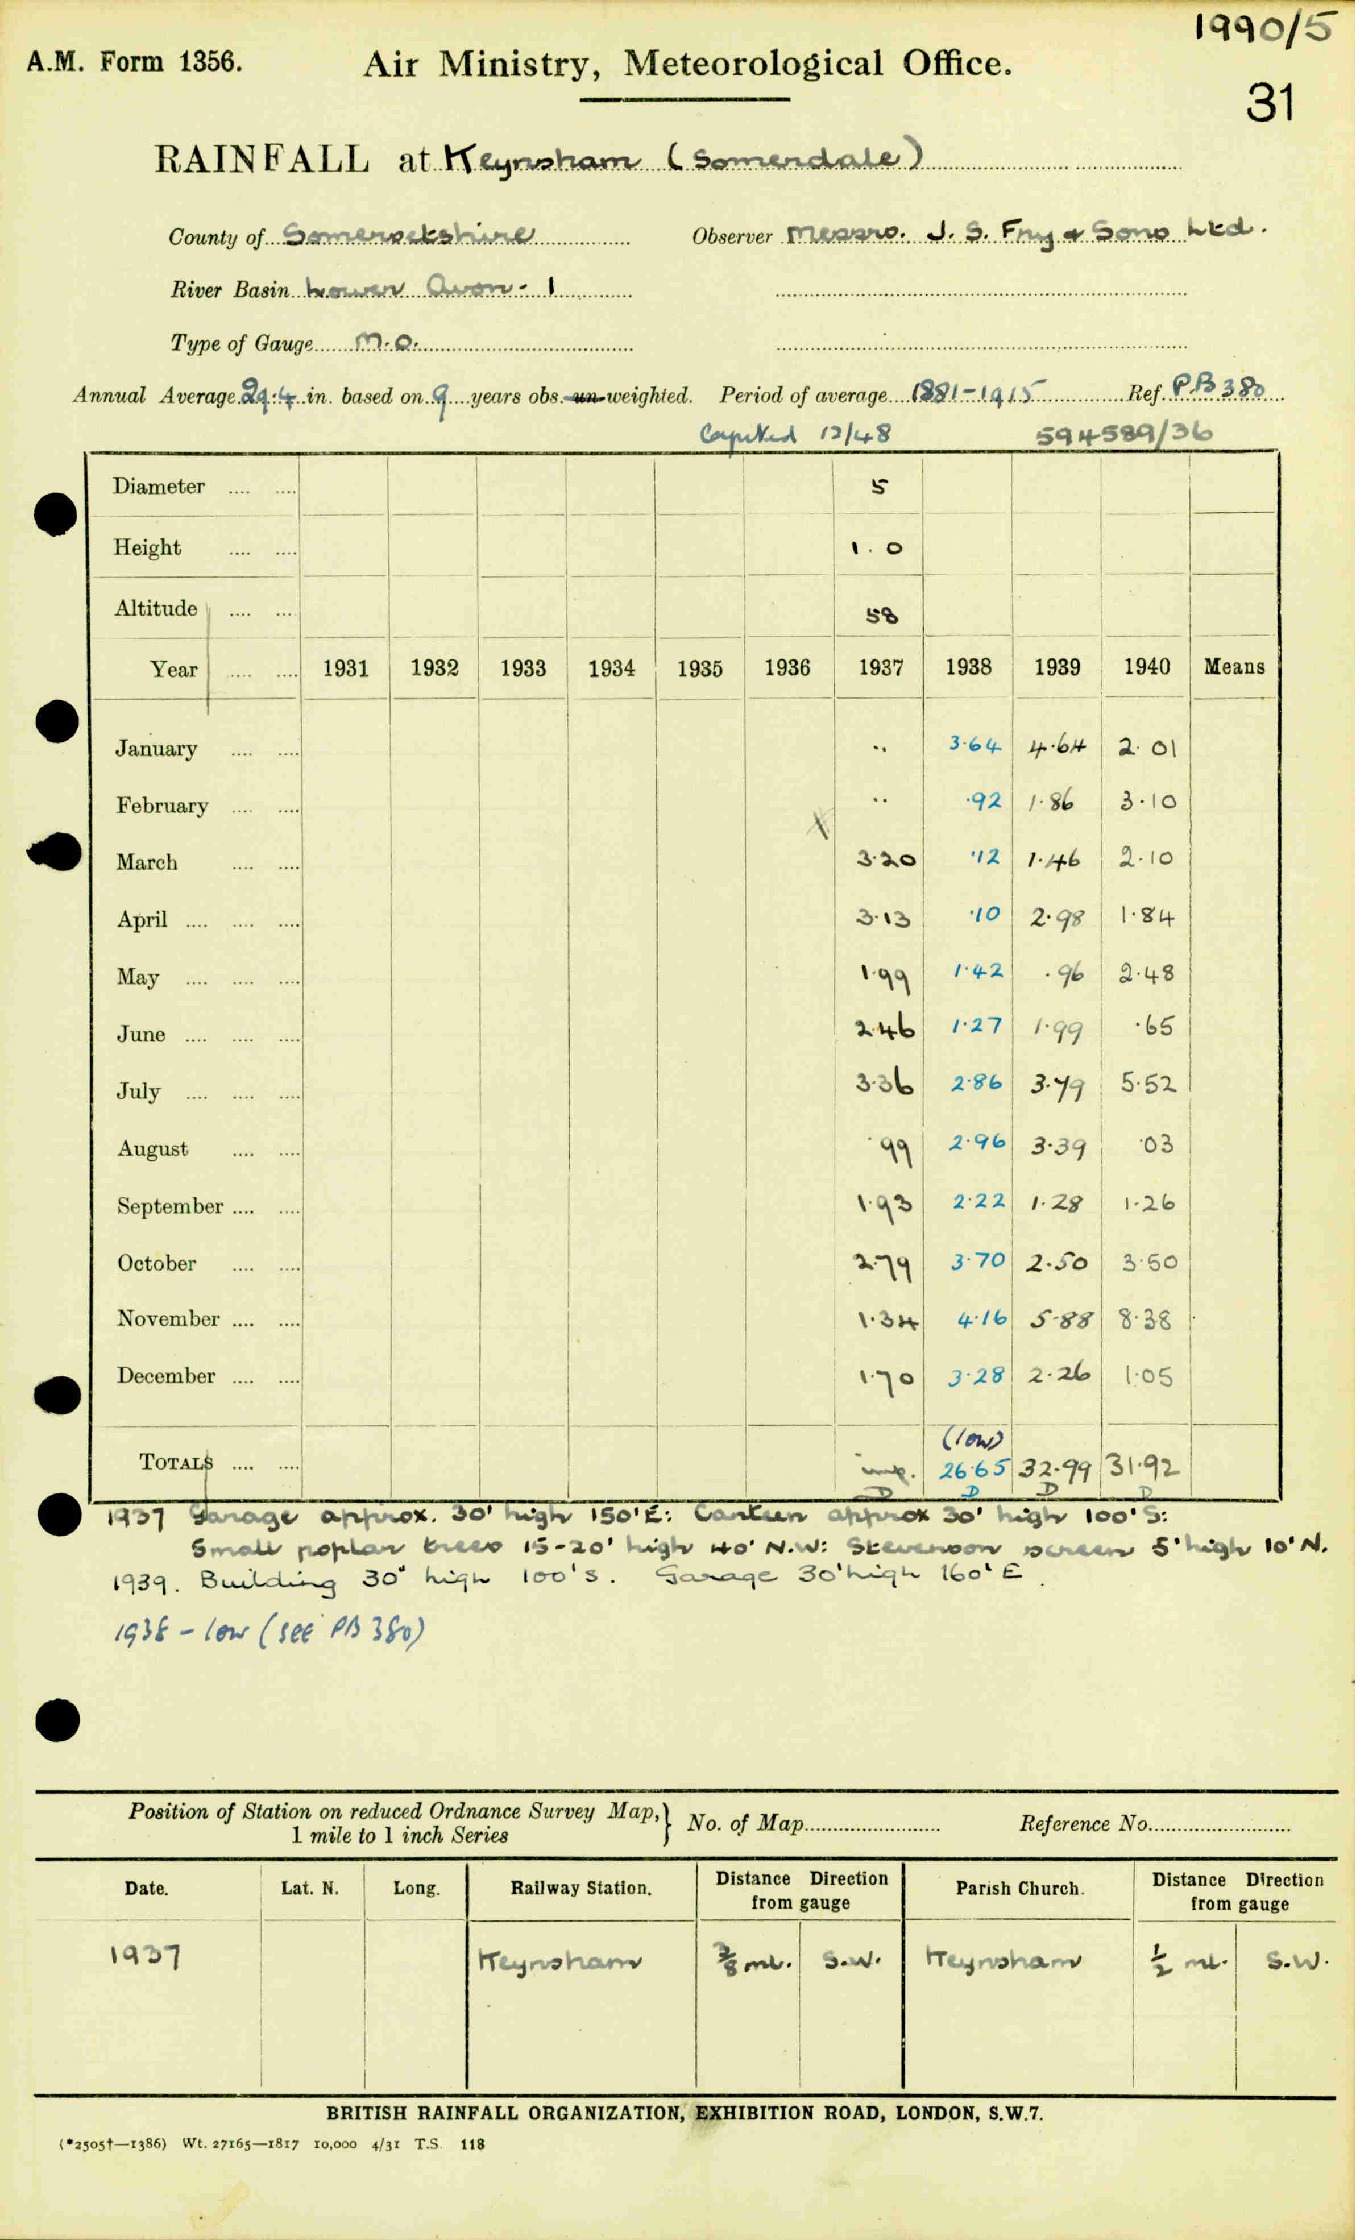 1990/5
A.M. Form 1356. Air Ministry, Meteorological Office.
31
RAINFALL at Keynsham (Somerdale)
County of Somersetshire Observer Messrs. J. S. Fry & Sons Ltd.
River Basin Lower Avon - 1
Type of Gauge M.O.
Annual Average 29.4 in. based on 9 years obs. un-weighted. Period of average 1881-1915 Ref. PB 380
Computed 12/48 594589/36
Diameter .... .... 5
Height .... .... 1.0
Altitude .... .... 58
Year .... .... 1931 1932 1933 1934 1935 1936 1937 1938 1939 1940 Means
January .... .... .. 3.64 4.64 2.01
February .... .... .. .92 1.86 3.10
March .... .... 3.20 .12 1.46 2.10
April .... .... .... 3.13 .10 2.98 1.84
May .... .... .... 1.99 1.42 .96 2.48
June .... .... .... 2.46 1.27 1.99 .65
July .... .... .... 3.36 2.86 3.79 5.52
August .... .... .99 2.96 3.39 .03
September .... .... 1.93 2.22 1.28 1.26
October .... .... 2.79 3.70 2.50 3.50
November .... .... 1.34 4.16 5.88 8.38
December .... .... 1.70 3.28 2.26 1.05
(low)
TOTALS .... .... imp. 26.65 32.99 31.92
D D D D
1937 Garage approx. 30' high 150' E: Canteen approx 30' high 100' S:
Small poplar trees 15-20' high 40' N.W: Stevenson screen 5' high 10' N.
1939. Building 30' high 100' S. Garage 30' high 160' E.
1938 - low (see PB 380)
Position of Station on reduced Ordnance Survey Map, } No. of Map Reference No.
1 mile to 1 inch Series
Date. Lat. N. Long. Railway Station. Distance Direction from gauge Parish Church. Distance Direction from gauge
1937 Keynsham 3/8 ml. S.W. Keynsham 1/2 ml. S.W.
BRITISH RAINFALL ORGANIZATION, EXHIBITION ROAD, LONDON, S.W.7.
(*2505†—1386) Wt. 27165—1817 10,000 4/31 T.S. 118